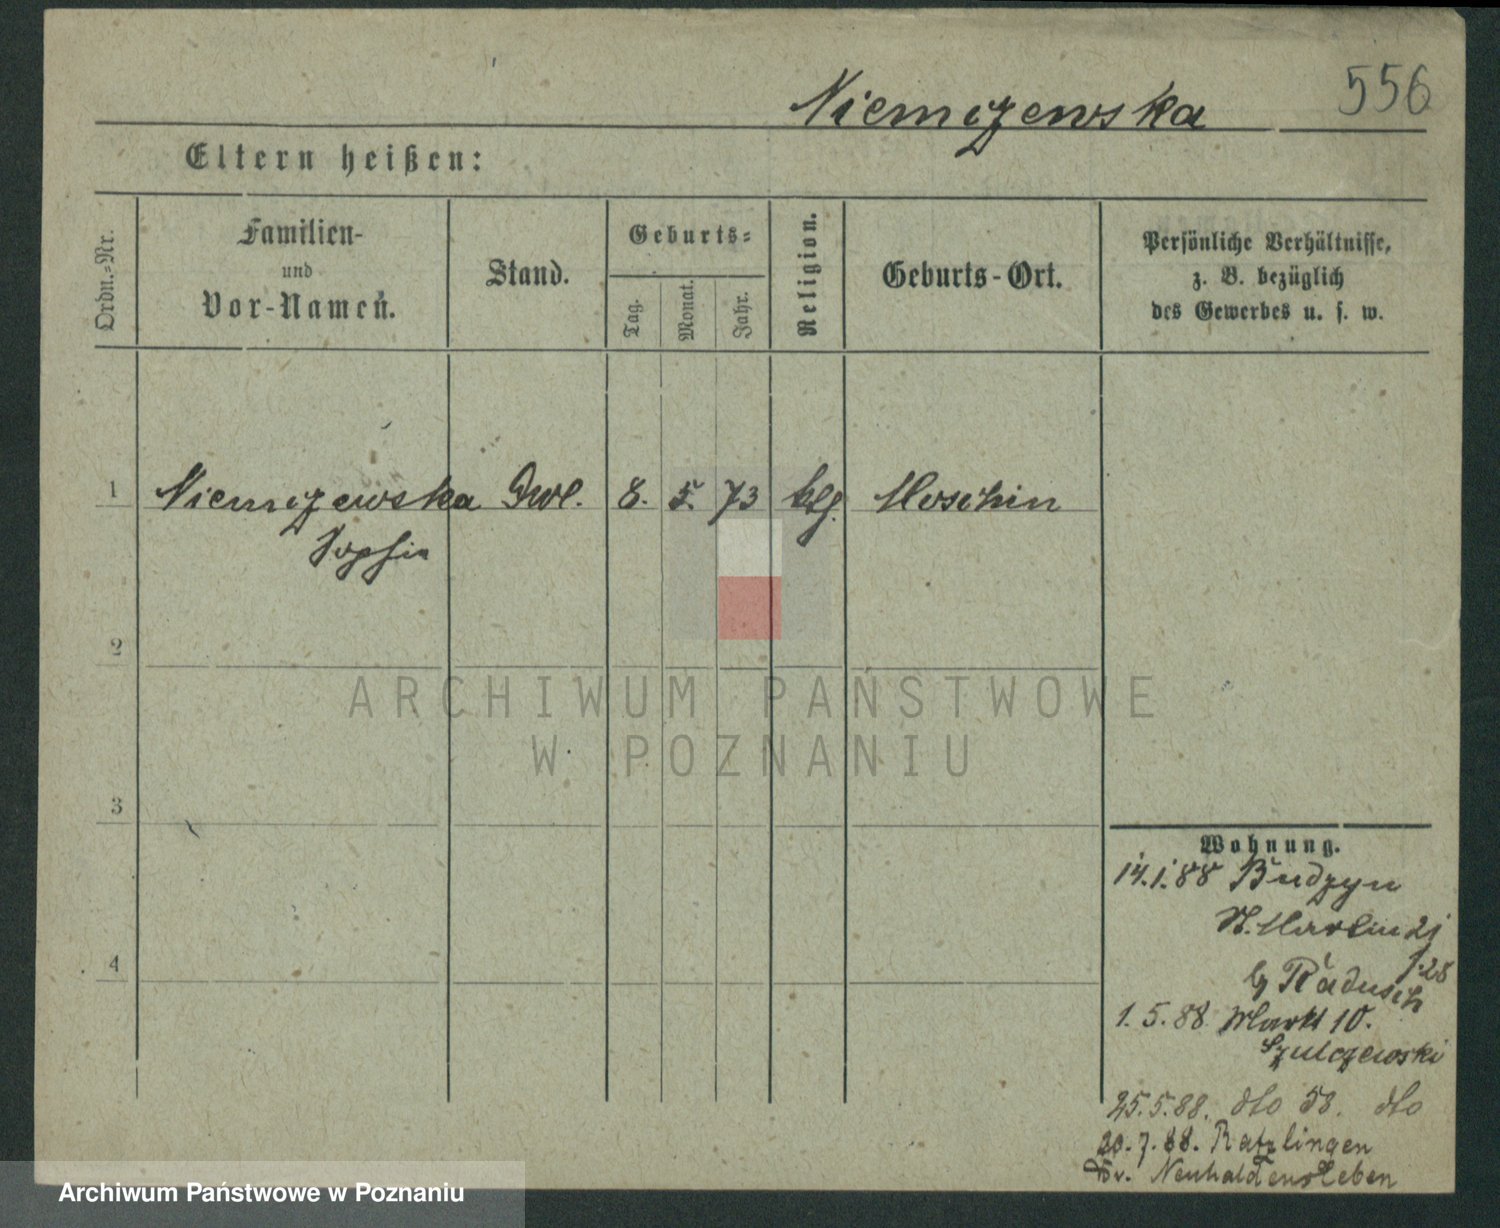 556
Niemczewska
Eltern heißen:
Ordn.-Nr.
Familien-
und
Vor-Namen.
Stand.
Geburts-
Tag.
Monat.
Jahr.
Religion.
Geburts-Ort.
Persönliche Verhältnisse,
z. B. bezüglich
des Gewerbes u. s. w.
1 Niemczewska 8. 5. 73 ktg. Moschin
Sophie
2
3
4
ARCHIWUM PAŃSTWOWE
W POZNANIU
Wohnung.
14.1.88 Budzyn
St. Martin 21
b/ Radusch
1.5.88 Markt 10.
Szulczewski
25.5.88. dto 58. dto
20.7.88. Ratzlingen
Neuhaldensleben
Archiwum Państwowe w Poznaniu